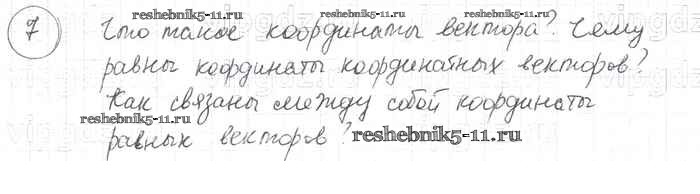 reshebnik5-11.ru reshebnik5-11.ru
7 Что такое координаты вектора? Чему
равны координаты координатных векторов?
Как связаны между собой координаты
reshebnik5-11.ru
равных векторов?
reshebnik5-11.ru